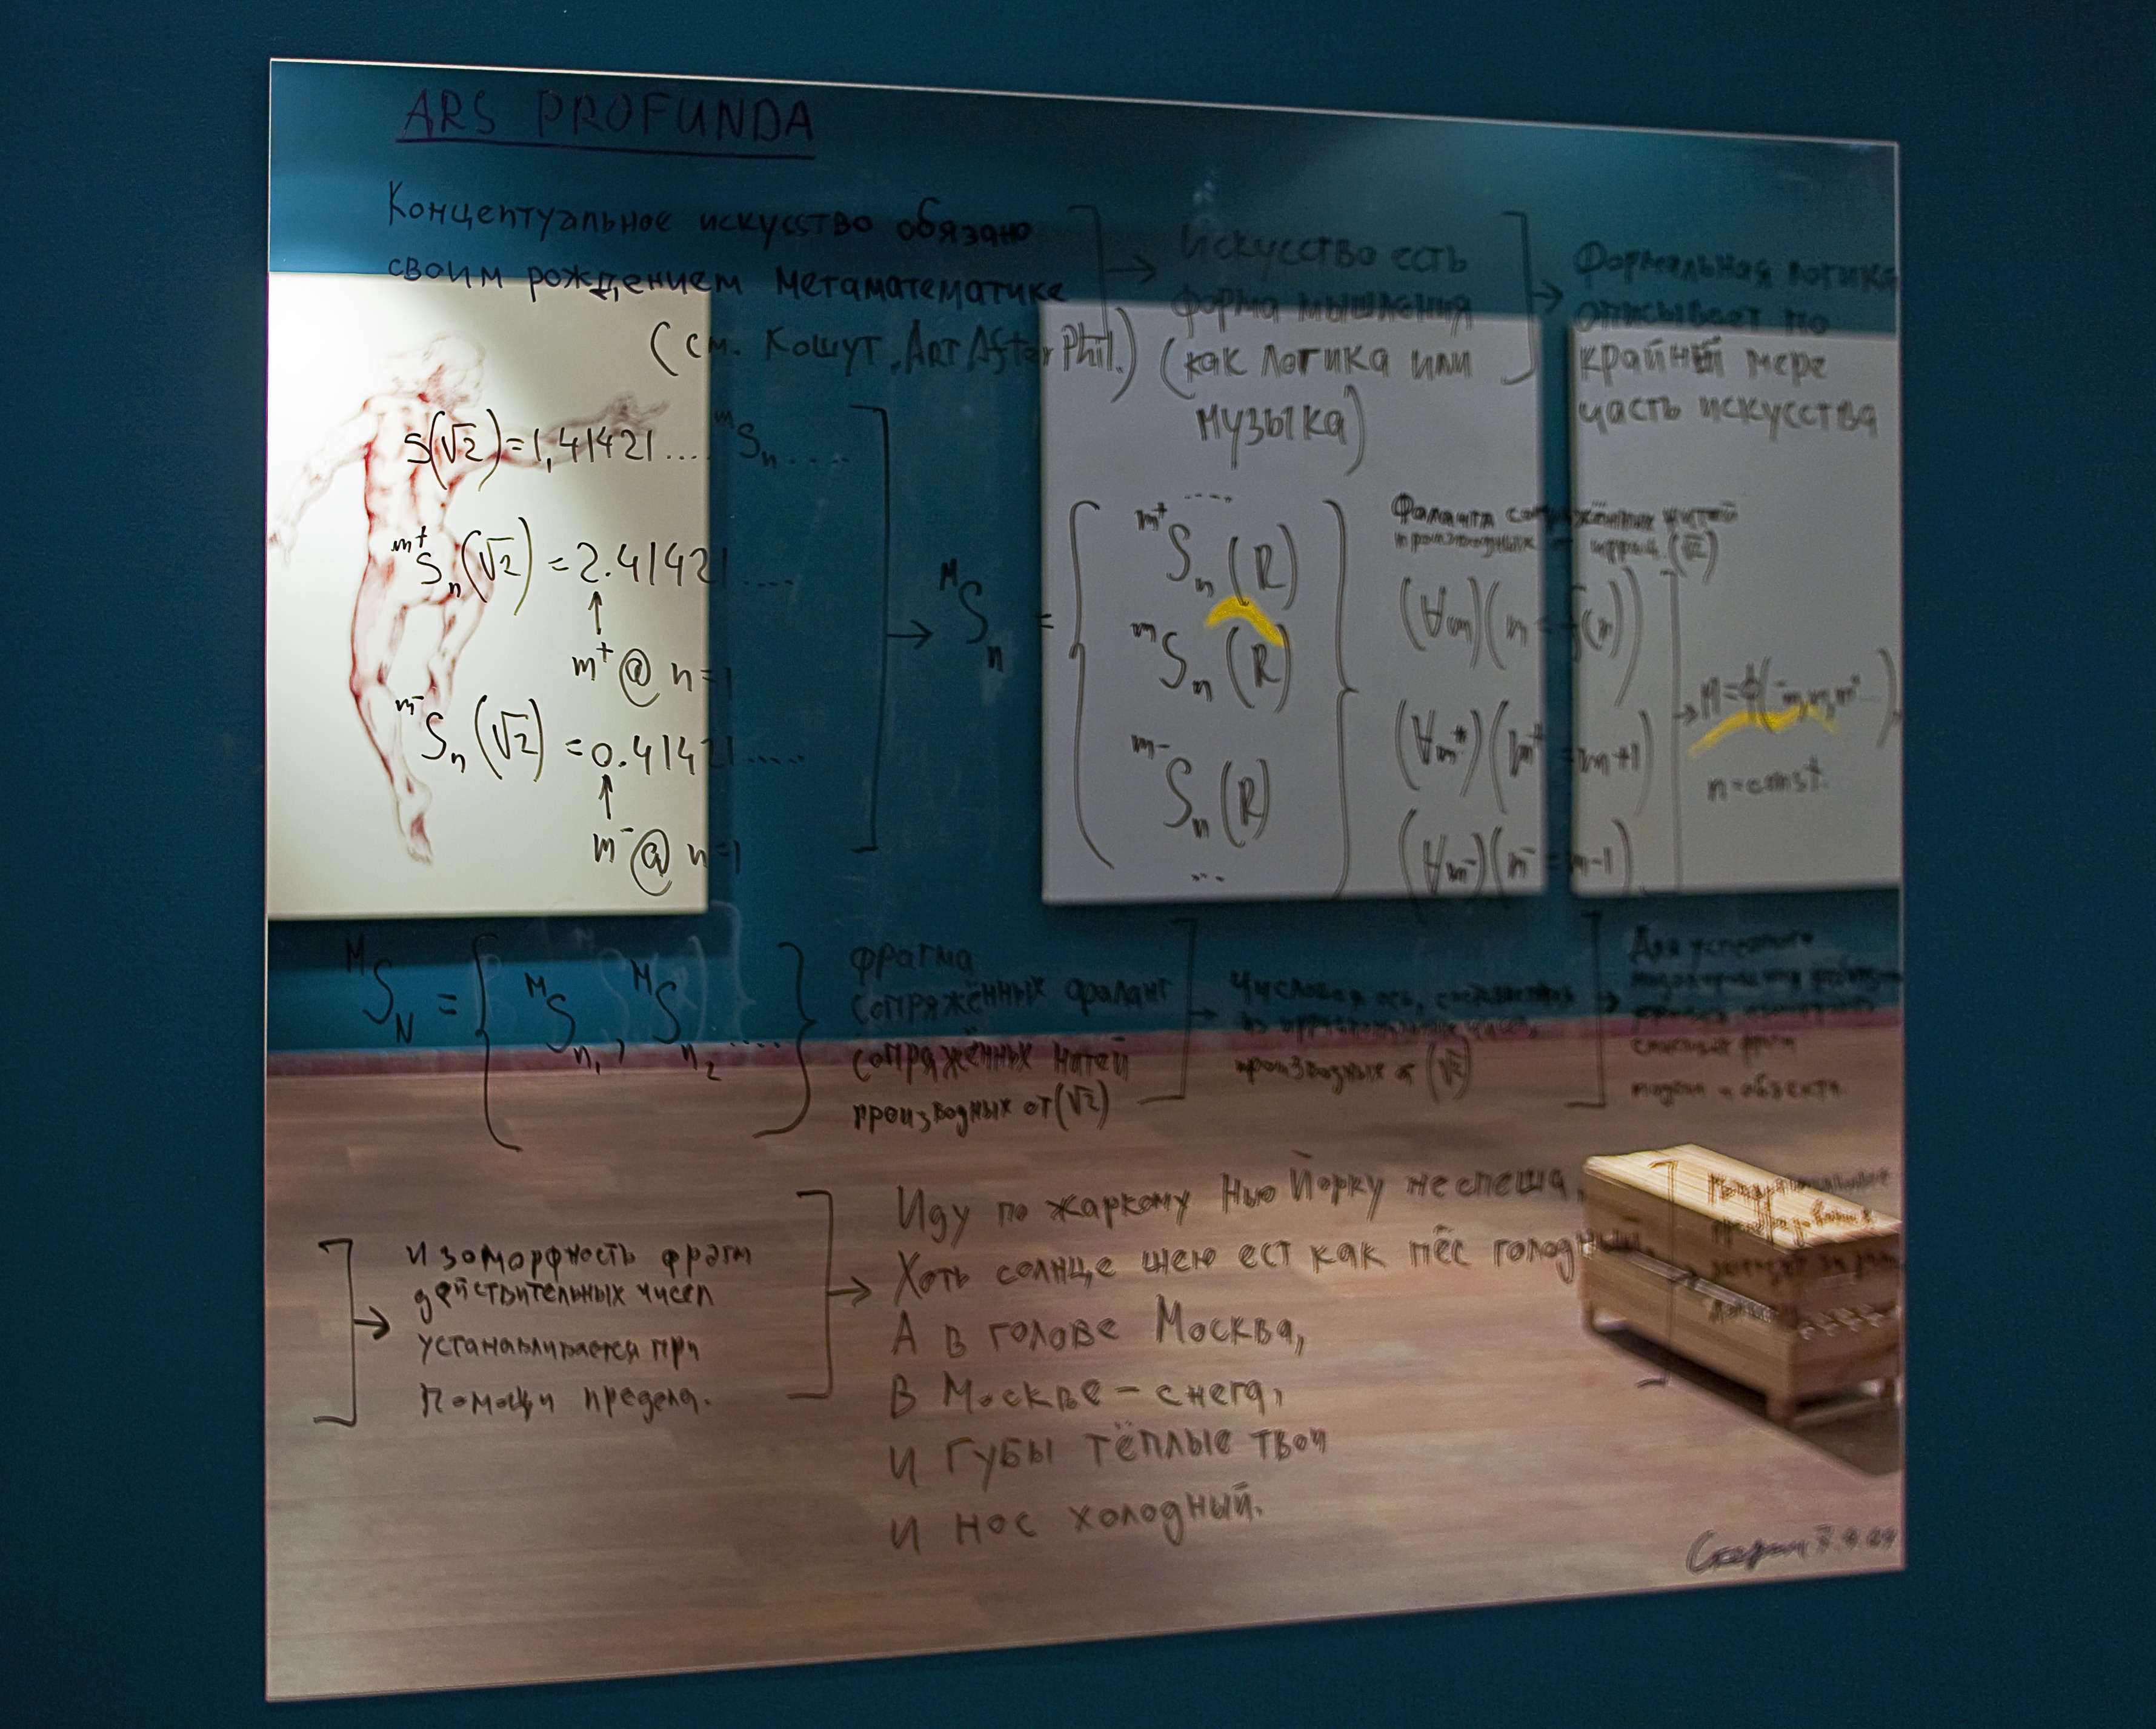 ARS PROFUNDA
Концептуальное искусство обязано
своим рождением метаматематике
(см. Кошут, Art After Phil.)
Искусство есть
форма мышления
(как логика или
музыка)
Формальная логика
описывает по
крайней мере
часть искусства
S(√2)=1,41421....
ᵐSₙ....
ᵐ⁺Sₙ(√2)=2.41421....
m⁺@ n=1
ᵐ⁻Sₙ(√2)=0.41421....
m⁻@ n=1
ᴹSₙ =
....
ᵐ⁺Sₙ(R)
ᵐSₙ(R)
ᵐ⁻Sₙ(R)
...
Фаланга сопряжённых нитей
производных (√2)
(∀m)(n = f(n))
(∀m⁺)(m⁺=m+1)
(∀m⁻)(m⁻=m-1)
n=const.
ᴹS_N = { ᴹSₙ₁, ᴹSₙ₂.... }
фрагма
сопряжённых фаланг
сопряжённых нитей
производных от (√2)
Числовая ось,
производных (√2)
Для успешного
модели и объекта.
Изоморфность фрагм
действительных чисел
устанавливается при
помощи предела.
Иду по жаркому Нью Йорку не спеша,
Хоть солнце шею ест как пёс голодный.
А в голове Москва,
В Москве – снега,
И губы тёплые твои
И нос холодный.